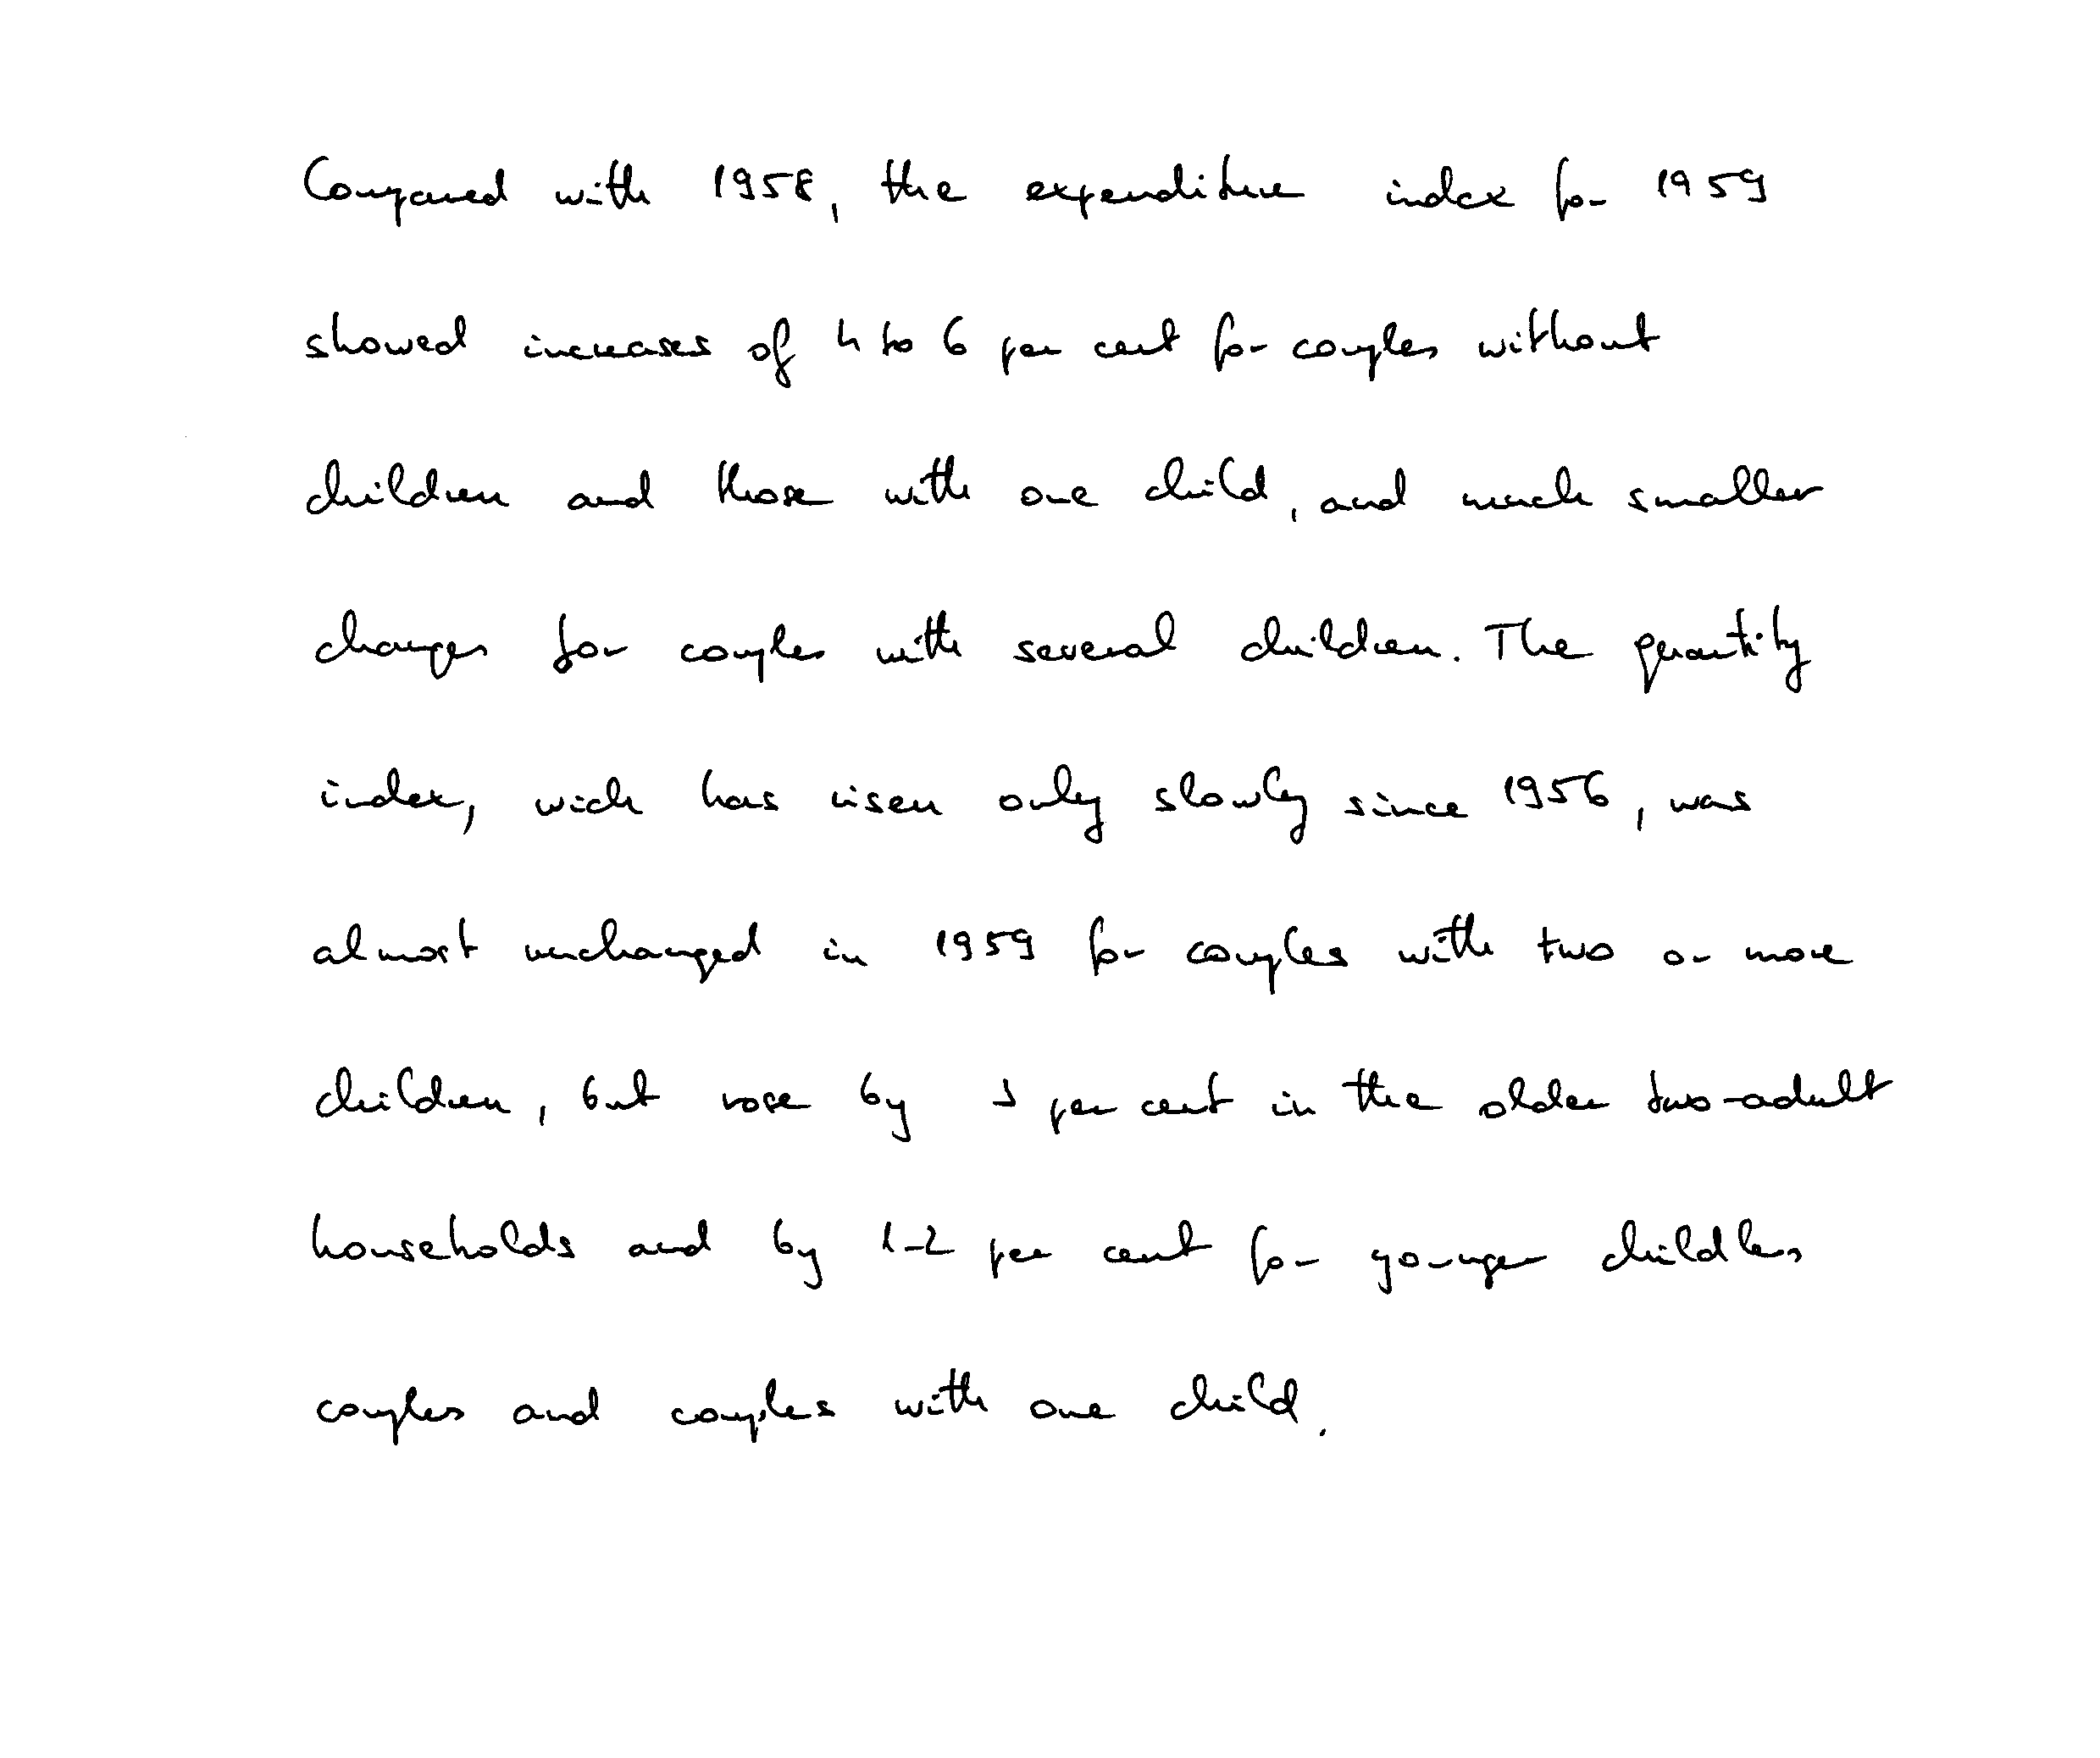 Compared with 1958, the expenditure index for 1959
showed increases of 4 to 6 per cent for couples without
children and those with one child, and much smaller
changes for couples with several children. The quantity
index, wich has risen only slowly since 1956, was
almost unchanged in 1959 for couples with two or more
children, but rose by per cent in the older two-adult
households and by 1-2 per cent for younger childless
couples and couples with one child.